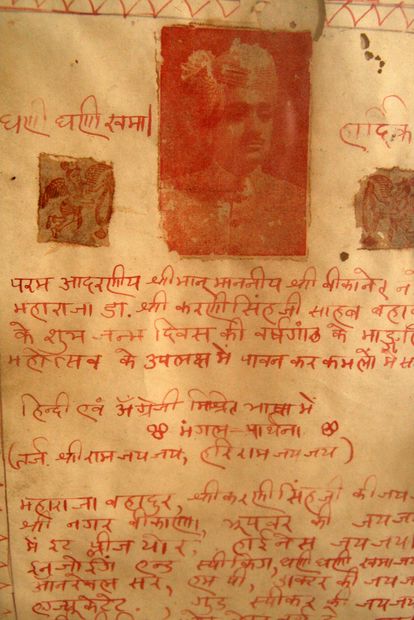 धणी धणी खमा
हार्दिक
परम आदरणीय श्रीमान् माननीय श्री बीकानेर न
महाराजा डा. श्री करणीसिंहजी साहब बहा
के शुभ जन्म दिवस की वर्षगांठ के माङ्गलि
महोत्सव के उपलक्ष में पावन कर कमलों में स
हिन्दी एवं अँग्रेजी मिश्रित भाषा में
मंगल-प्रार्थना
(तर्ज. श्रीराम जय जय, हरि राम जय जय)
महाराजा बहादुर, श्री करणीसिंहजी की जय
श्री नगर बीकाणा, की जय जय
में इट प्लीज योर, हाईनेस जयजय
इनजोइंग एन्ड स्पीकिंग, धणी धणी खमा जय
आनरेबल सर, एम पी, डाक्टर की जय
एज्यूकेटेट, गुड स्पीकर की जय